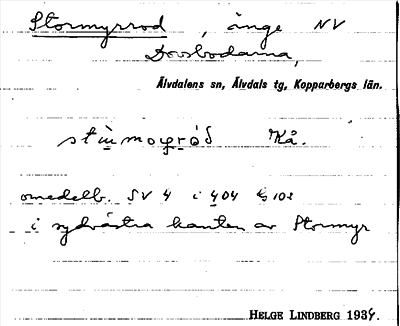 Stormyrrod, änge NV
Dovbodarna,
Älvdalens sn, Älvdals tg, Kopparbergs län.
Kå.
omedelb. SV 4 i 404 102
i sydvästra kanten av Stormyr
HELGE LINDBERG 1934.